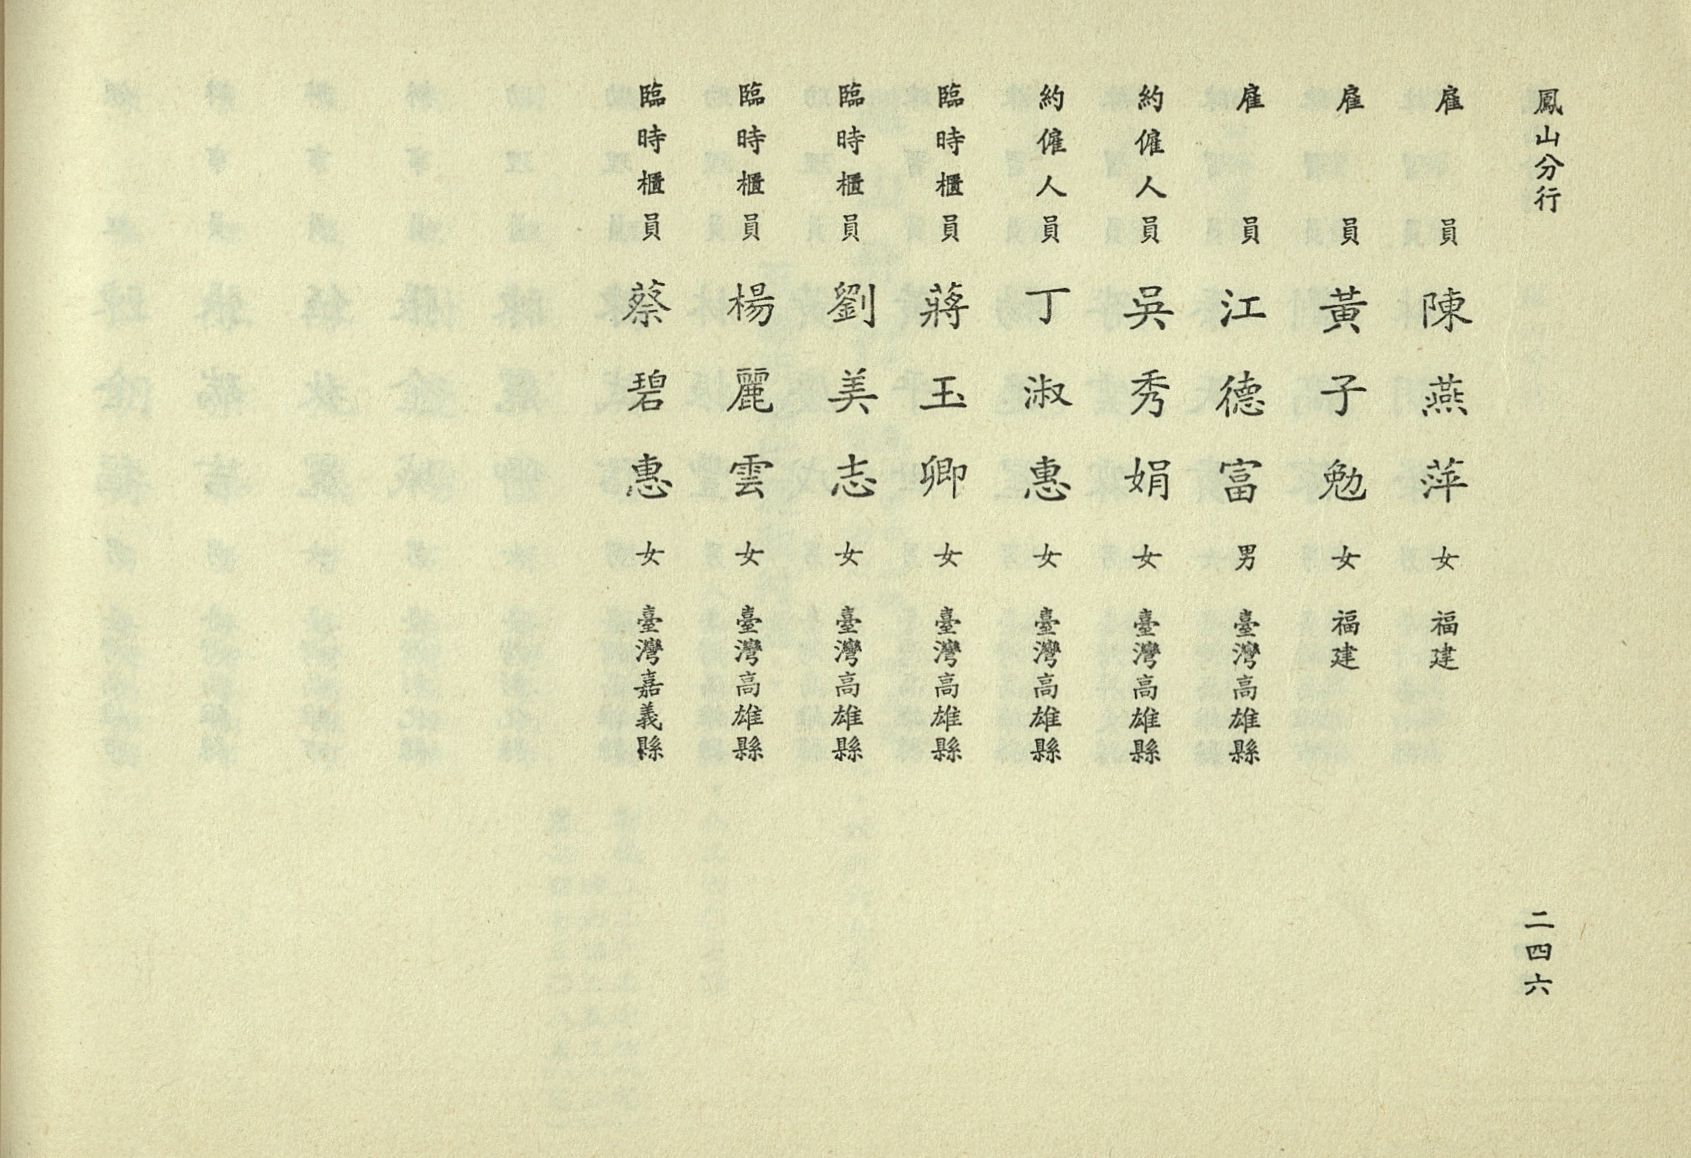 鳳山分行
二四六
雇員 陳燕萍 女 福建
雇員 黃子勉 女 福建
雇員 江德富 男 臺灣高雄縣
約僱人員 吳秀娟 女 臺灣高雄縣
約僱人員 丁淑惠 女 臺灣高雄縣
臨時櫃員 蔣玉卿 女 臺灣高雄縣
臨時櫃員 劉美志 女 臺灣高雄縣
臨時櫃員 楊麗雲 女 臺灣高雄縣
臨時櫃員 蔡碧惠 女 臺灣嘉義縣